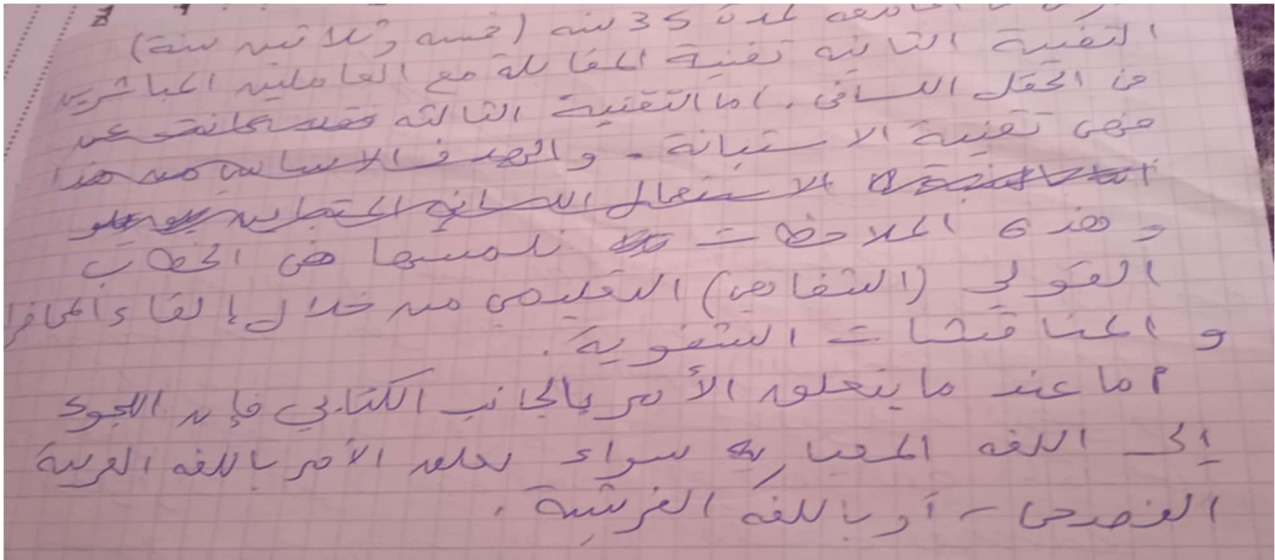 الجامعة لمدة 35 سنة (خمسة وثلاثين سنة)
التقنية الثانية تقنية المقابلة مع العاملين المباشرين
في الحقل اللساني، اما التقنية الثالثة فقد كانت عن
فهي تقنية الاستبانة. والهدف الاساسي من هذا
الاستعمال اللساني
وهذه الملاحظات نلمسها في الخطاب
القولي (التفاهمي) التعليمي من خلال إلقاء المحاضرا
و المناقشات الشفوية.
أما عند ما يتعلق الأمر بالجانب الكتابي فإن اللجوء
إلى اللغه المعياريه سواء تعلق الأمر باللغه العربية
الفصحى - أو باللغه الفرنسية.